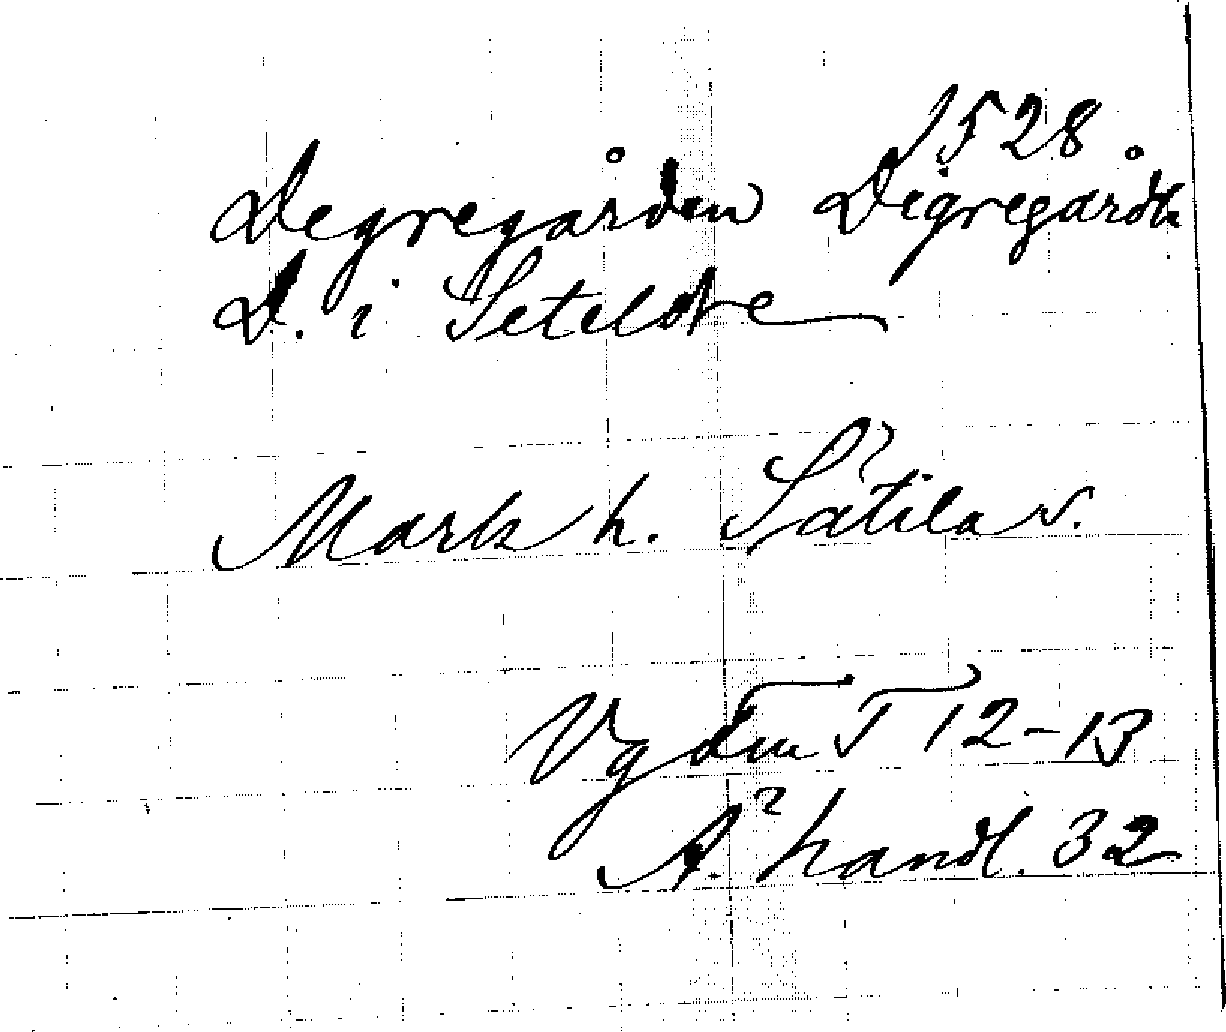 1528.
Degregården Digregårdh
D. i Seteldre
Mark h. Sätila s.
Vg den T 12-13
Ä. handl. 32